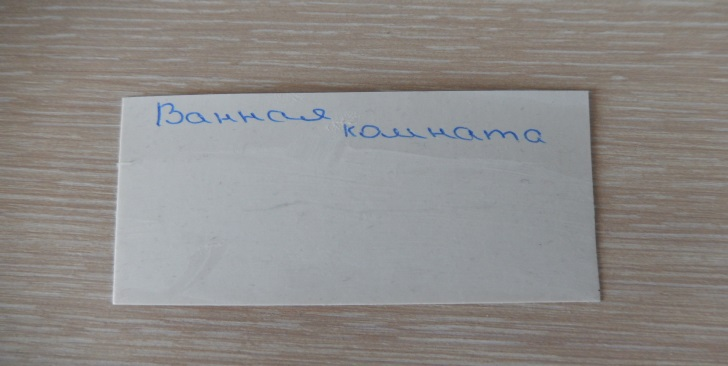 Ванная комната